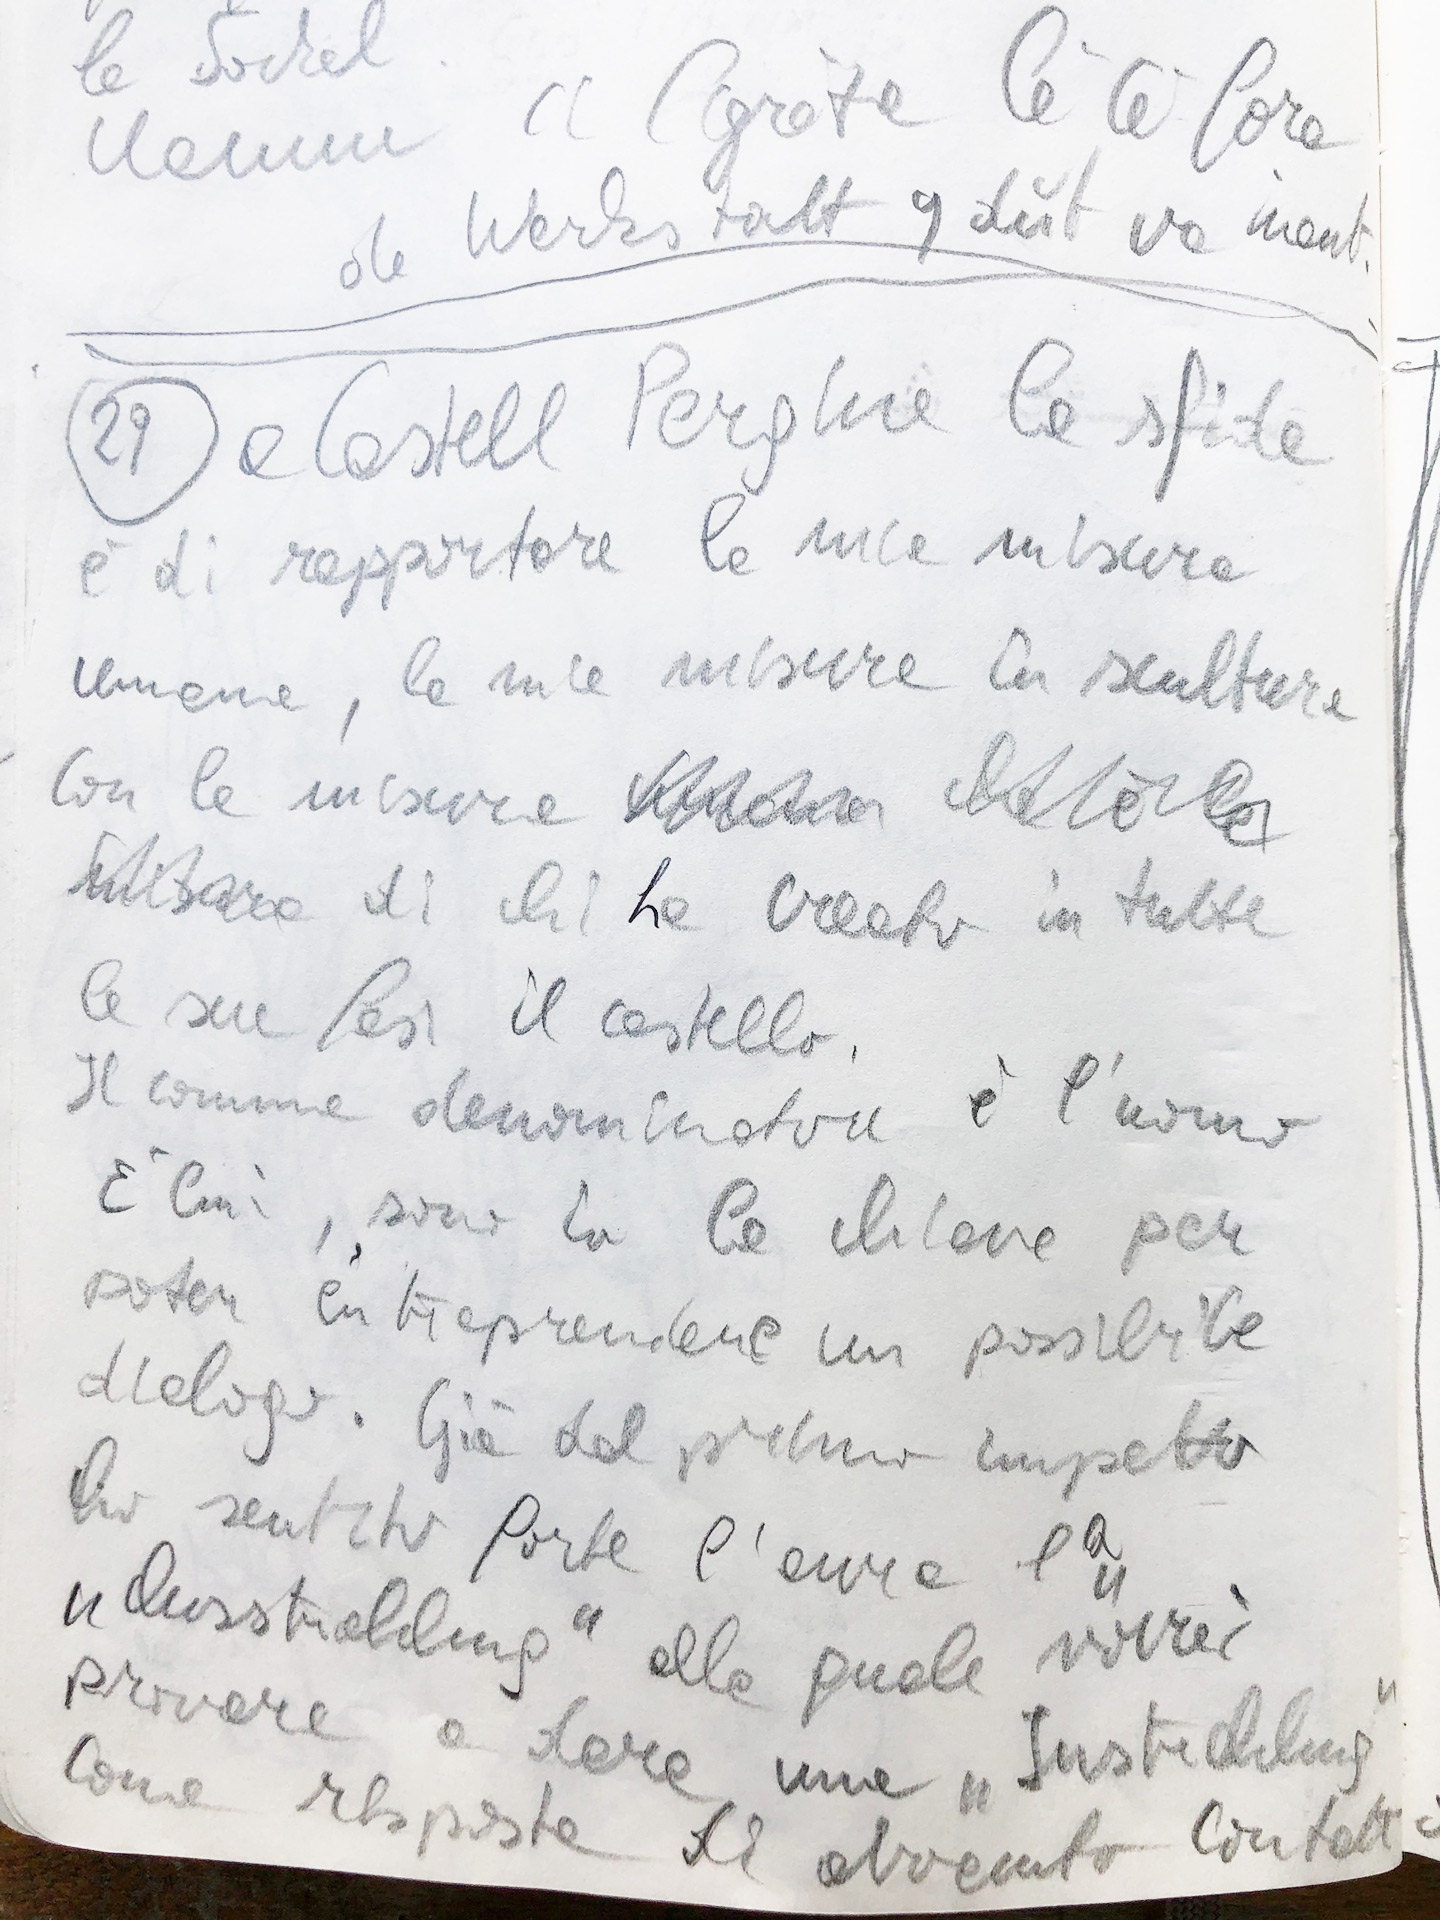 la
de Werkstatt y düt va inant.
29 a Castell Pergine la sfida
è di rapportare la mia misura
umana, la mia misura in scultura
con la misura
misura di chi ha creato in tutte
le sue fasi il castello.
Il comune denominatore è l'uomo
È lui, sono io la chiave per
poter intraprendere un possibile
dialogo. Già dal primo impatto
ho sentito forte l'aura l'a
"Ausstrahlung" alla quale vorrei
provare a dare una "Instrahlung"
come risposta di avvenuto contatto